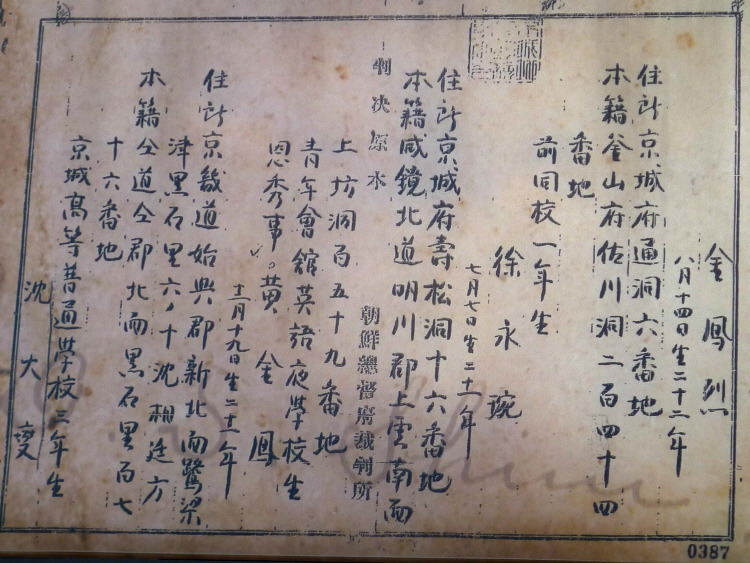 金鳳烈
八月十四日生二十二年
住所京城府通洞六番地
本籍釜山府佐川洞二百四十四
番地
前同校一年生
徐永琬
七月七日生二十一年
住所京城府壽松洞十六番地
本籍咸鏡北道明川郡上雲南面
判決原本 朝鮮總督府裁判所
上坊洞百五十九番地
青年會館英語夜學校生
恩秀事。黄金鳳
月十九日生二十二年
住所京畿道始興郡新北面鷺梁
津黒石里六ノ十沈相廷方
本籍仝道仝郡北面黒石里百七
十六番地
京城高等普通學校三年生
沈大燮
0387